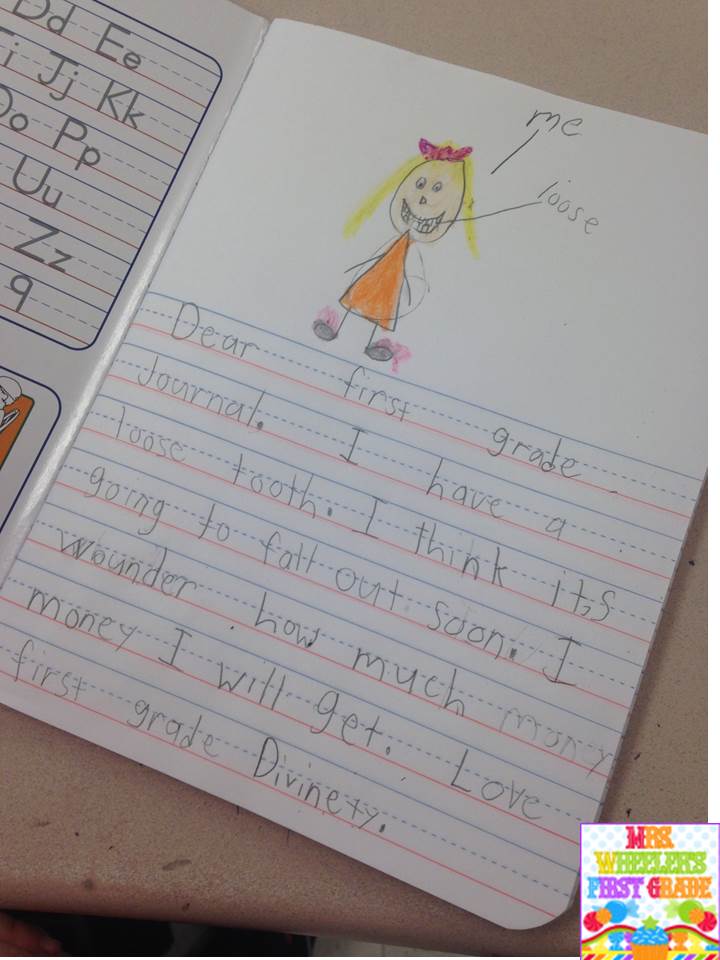 Dd Ee
Jj Kk
Pp
Uu
Zz
9
me
loose
Dear first grade
Journal. I have a
loose tooth. I think it,s
going to fall out soon. I
wounder how much money
money I will get. Love
first grade Divinety.
MRS.
WHEELER'S
FIRST GRADE